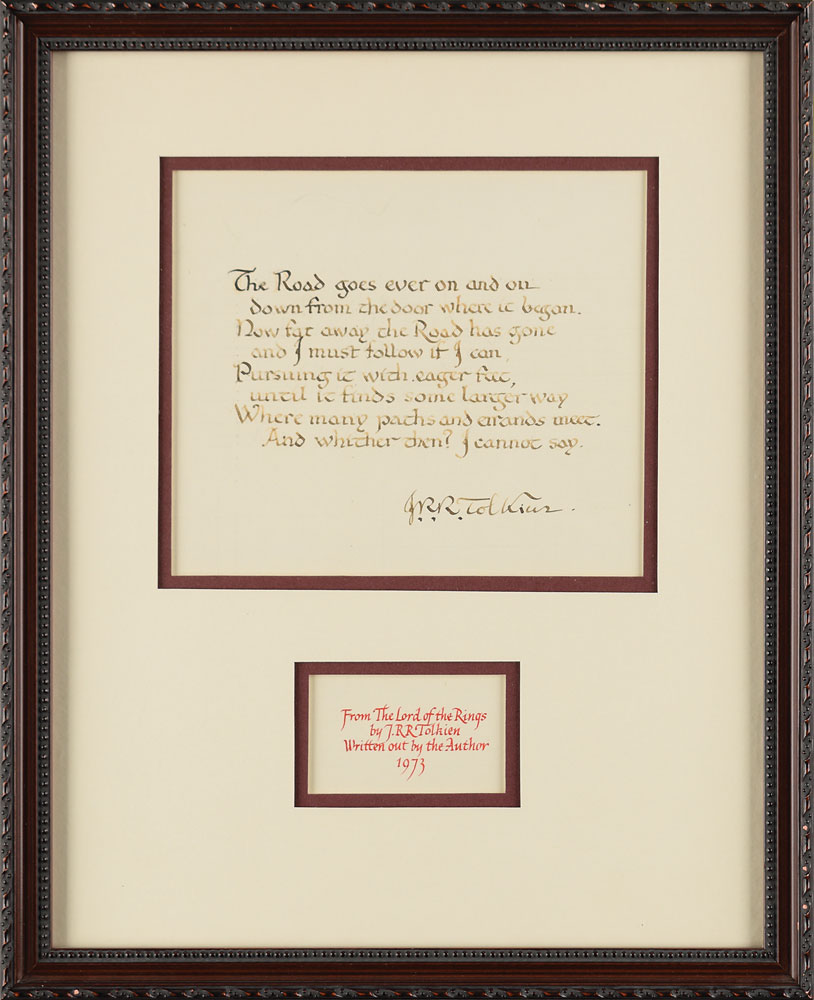 The Road goes ever on and on
down from the door where it began.
Now far away the Road has gone
and I must follow if I can,
Pursuing it with eager feet,
until it finds some larger way
Where many paths and errands meet.
And whither then? I cannot say.
J.R.R. Tolkien.
From The Lord of the Rings
by J.R.R Tolkien
Written out by the Author
1973